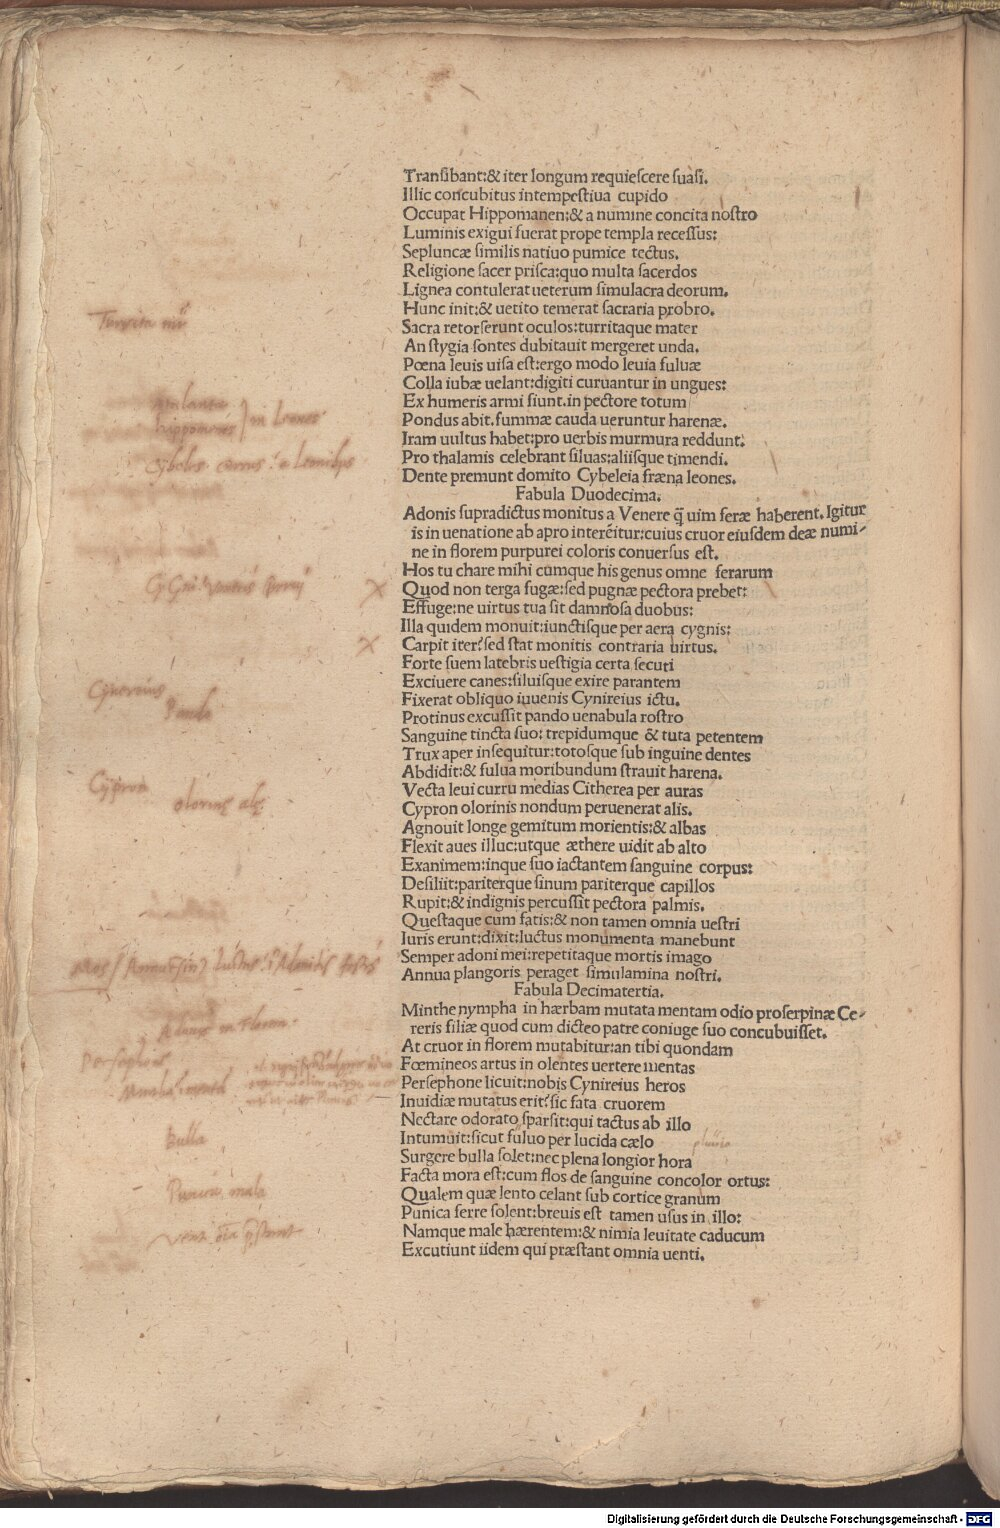 Transibant:& iter longum requiescere suasi.
Illic concubitus intempestiua cupido
Occupat Hippomanen:& a numine concita nostro
Luminis exigui fuerat prope templa recessus:
Sepluncæ similis natiuo pumice tectus.
Religione sacer prisca:quo multa sacerdos
Lignea contulerat ueterum simulacra deorum.
Hunc init:& uetito temerat sacraria probro.
Sacra retorserunt oculos:turritaque mater
An stygia sontes dubitauit mergeret unda.
Pœna leuis uisa est:ergo modo leuia fuluæ
Colla iubæ uelant:digiti curuantur in ungues:
Ex humeris armi fiunt.in pectore totum
Pondus abit.summæ cauda ueruntur harenæ.
Iram uultus habet:pro uerbis murmura reddunt:
Pro thalamis celebrant siluas:aliisque timendi.
Dente premunt domito Cybeleia fræna leones.
Fabula Duodecima.
Adonis supradictus monitus a Venere q̃ uim feræ haberent. Igitur
is in uenatione ab apro interẽitur:cuius cruor eiusdem deæ numi-
ne in florem purpurei coloris conuersus est.
Hos tu chare mihi cumque his genus omne ferarum
Quod non terga fugæ:sed pugnæ pectora prebet:
Effuge:ne uirtus tua sit damnosa duobus:
Illa quidem monuit:iunctisque per aera cygnis:
Carpit iter:sed stat monitis contraria uirtus.
Forte suem latebris uestigia certa secuti
Exciuere canes:siluisque exire parantem
Fixerat obliquo iuuenis Cynireius ictu.
Protinus excussit pando uenabula rostro
Sanguine tincta suo: trepidumque & tuta petentem
Trux aper insequitur:totosque sub inguine dentes
Abdidit:& fulua moribundum strauit harena.
Vecta leui curru medias Citherea per auras
Cypron olorinis nondum peruenerat alis.
Agnouit longe gemitum morientis:& albas
Flexit aues illuc:utque æthere uidit ab alto
Exanimem:inque suo iactantem sanguine corpus:
Desiliit:pariterque sinum pariterque capillos
Rupit:& indignis percussit pectora palmis.
Questaque cum fatis:& non tamen omnia uestri
Iuris erunt:dixit:luctus monumenta manebunt
Semper adoni mei:repetitaque mortis imago
Annua plangoris peraget simulamina nostri.
Fabula Decimatertia.
Minthe nympha in hærbam mutata mentam odio proserpinæ Ce-
reris filiæ quod cum dicteo patre coniuge suo concubuisset.
At cruor in florem mutabitur:an tibi quondam
Fœmineos artus in olentes uertere mentas
Persephone licuit:nobis Cynireius heros
Inuidiæ mutatus erit:sic fata cruorem
Nectare odorato sparsit:qui tactus ab illo
Intumuit:sicut fuluo per lucida cælo
Surgere bulla solet:nec plena longior hora
Facta mora est:cum flos de sanguine concolor ortus:
Qualem quæ lento celant sub cortice granum
Punica ferre solent:breuis est tamen usus in illo:
Namque male hærentem:& nimia leuitate caducum
Excutiunt iidem qui præstant omnia uenti.
Cypron
Bulla
Punica mala
Digitalisierung gefördert durch die Deutsche Forschungsgemeinschaft - DFG